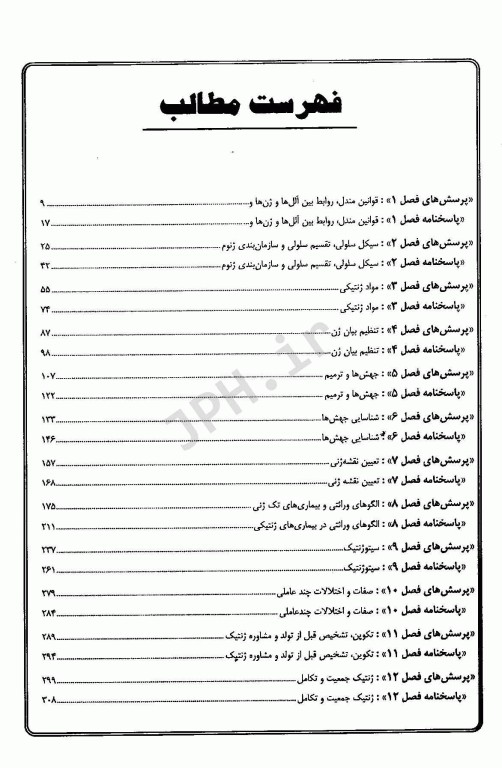 فهرست مطالب
«پرسش‌های فصل ۱» : قوانین مندل، روابط بین آلل‌ها و ژن‌ها و..........۹
«پاسخنامه فصل ۱» : قوانین مندل، روابط بین آلل‌ها و ژن‌ها و..........۱۷
«پرسش‌های فصل ۲» : سیکل سلولی، تقسیم سلولی و سازمان‌بندی ژنوم..........۲۵
«پاسخنامه فصل ۲» : سیکل سلولی، تقسیم سلولی و سازمان‌بندی ژنوم..........۴۲
«پرسش‌های فصل ۳» : مواد ژنتیکی..........۵۵
«پاسخنامه فصل ۳» : مواد ژنتیکی..........۷۴
«پرسش‌های فصل ۴» : تنظیم بیان ژن..........۸۷
«پاسخنامه فصل ۴» : تنظیم بیان ژن..........۹۸
«پرسش‌های فصل ۵» : جهش‌ها و ترمیم..........۱۰۷
«پاسخنامه فصل ۵» : جهش‌ها و ترمیم..........۱۲۲
«پرسش‌های فصل ۶» : شناسایی جهش‌ها..........۱۳۳
«پاسخنامه فصل ۶» : شناسایی جهش‌ها..........۱۴۶
«پرسش‌های فصل ۷» : تعیین نقشه‌ژنی..........۱۵۷
«پاسخنامه فصل ۷» : تعیین نقشه ژنی..........۱۶۸
«پرسش‌های فصل ۸» : الگوهای وراثتی و بیماری‌های تک ژنی..........۱۷۵
«پاسخنامه فصل ۸» : الگوهای وراثتی در بیماری‌های ژنتیکی..........۲۱۱
«پرسش‌های فصل ۹» : سیتوژنتیک..........۲۳۷
«پاسخنامه فصل ۹» : سیتوژنتیک..........۲۶۱
«پرسش‌های فصل ۱۰» : صفات و اختلالات چند عاملی..........۲۷۹
«پاسخنامه فصل ۱۰» : صفات و اختلالات چندعاملی..........۲۸۴
«پرسش‌های فصل ۱۱» : تکوین، تشخیص قبل از تولد و مشاوره ژنتیک..........۲۸۹
«پاسخنامه فصل ۱۱» : تکوین، تشخیص قبل از تولد و مشاوره ژنتیک..........۲۹۴
«پرسش‌های فصل ۱۲» : ژنتیک جمعیت و تکامل..........۲۹۹
«پاسخنامه فصل ۱۲» : ژنتیک جمعیت و تکامل..........۳۰۸
JPH.ir